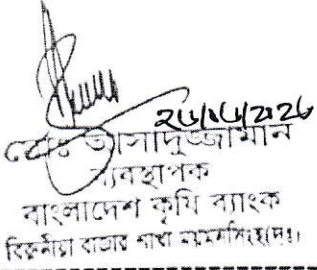 মোঃ আসাদুজ্জামান
ব্যবস্থাপক
বাংলাদেশ কৃষি ব্যাংক
বাজার শাখা ময়মনসিংহ(দঃ)।